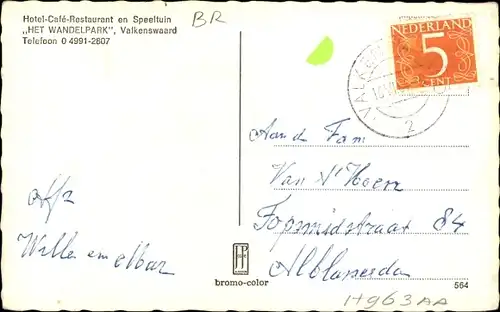 Hotel-Café-Restaurant en Speeltuin
„HET WANDELPARK", Valkenswaard
Telefoon 0 4991-2807
BR
NEDERLAND
5
CENT
2
Aan d Fam
Van 't Hoen
84
Alblasserda
Afz
bromo-color
564
Hg63AA